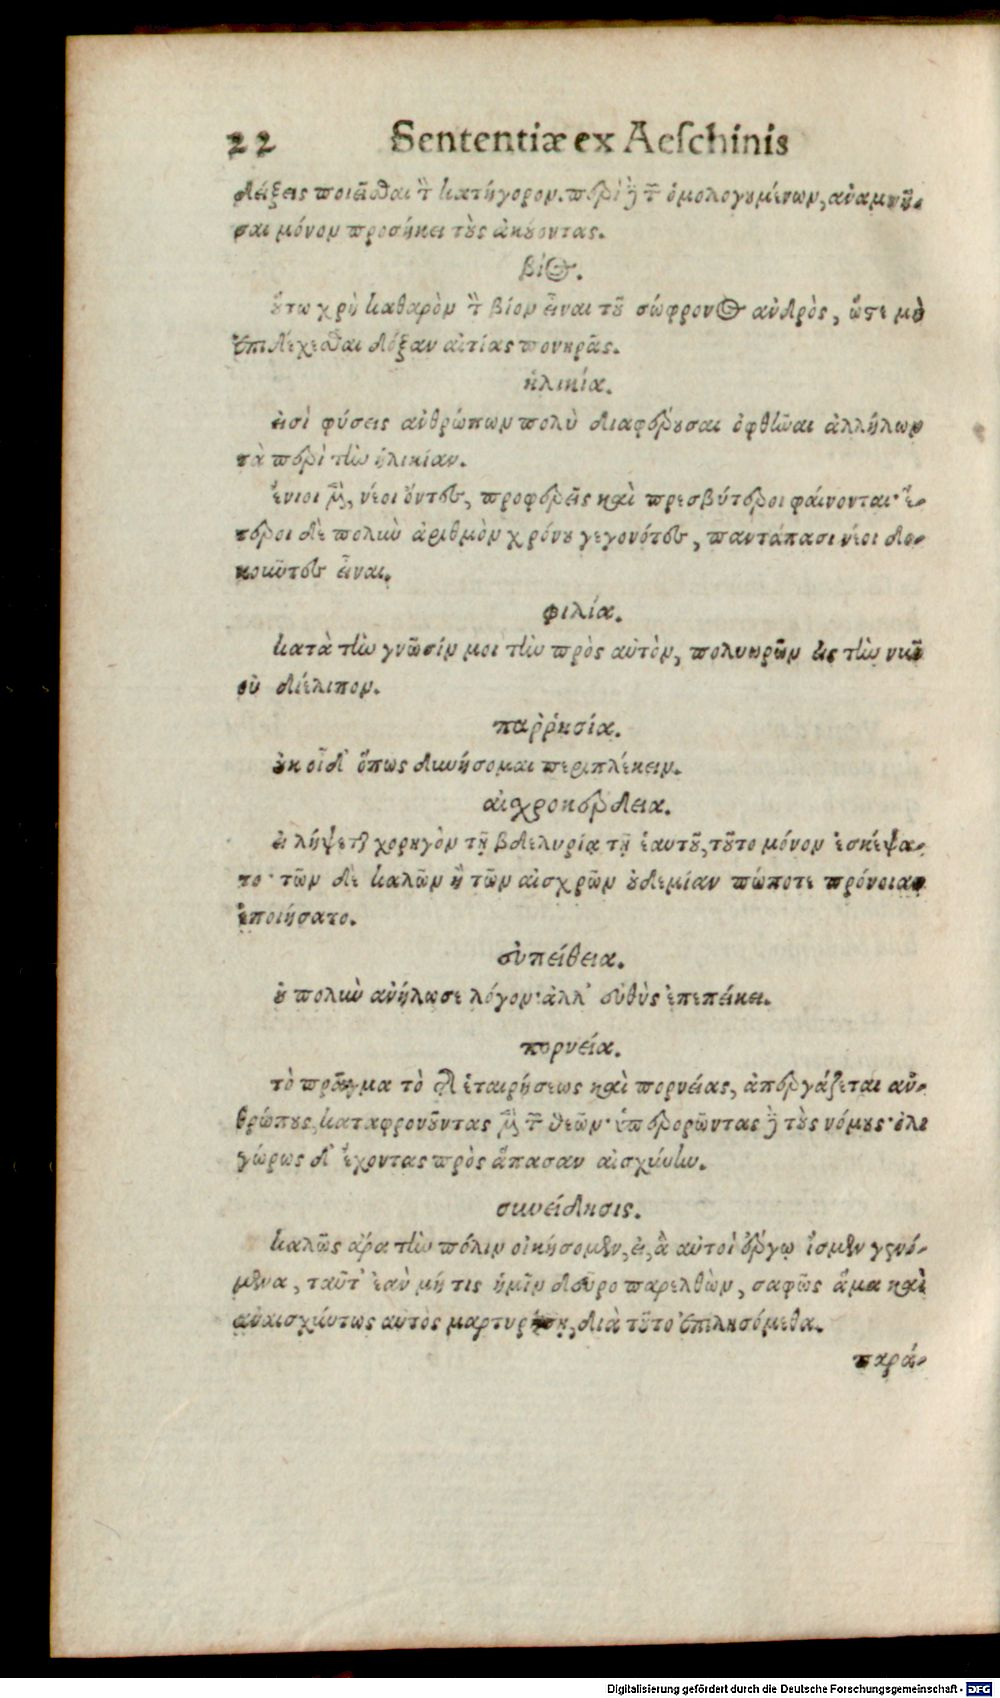 22 Sententiæ ex Aeschinis
δείξεις ποιεῖσθαι τὸν κατήγορον. περὶ δὲ τῶν ὁμολογουμένων, ἀναμνῆ-
σαι μόνον προσήκει τοὺς ἀκούοντας.
βίος.
οὕτω χρὴ καθαρὸν τὸν βίον εἶναι τοῦ σώφρονος ἀνδρὸς, ὥστε μὴ
ἐπιδέχεσθαι δόξαν αἰτίας πονηρᾶς.
ἡλικία.
εἰσὶ φύσεις ἀνθρώπων πολὺ διαφέρουσαι ὀφθῆναι ἀλλήλων
τὰ περὶ τὴν ἡλικίαν.
ἔνιοι μὲν, νέοι ὄντες, προφερεῖς καὶ πρεσβύτεροι φαίνονται· ἕ-
τεροι δὲ πολὺν ἀριθμὸν χρόνου γεγονότες, παντάπασι νέοι δο-
κοῦντες εἶναι.
φιλία.
κατὰ τὴν γνῶσίν μοι τὴν πρὸς αὐτὸν, πολυωρῶν εἰς τὴν νῦν
οὐ διέλιπον.
παῤῥησία.
οὐκ οἶδ' ὅπως δυνήσομαι περιπλέκειν.
αἰσχροκέρδεια.
εἰ λήψεται χορηγὸν τῇ βδελυρίᾳ τῇ ἑαυτοῦ, τοῦτο μόνον ἐσκέψα-
το· τῶν δὲ καλῶν ἢ τῶν αἰσχρῶν οὐδεμίαν πώποτε πρόνοιαν
ἐποιήσατο.
εὐπείθεια.
οὐ πολὺν ἀνήλωσε λόγον· ἀλλ' εὐθὺς ἐπεπείκει.
πορνεία.
τὸ πρᾶγμα τὸ τῆς ἑταιρήσεως καὶ πορνείας, ἀπεργάζεται ἀν-
θρώπους, καταφρονοῦντας μὲν τῶν θεῶν· ὑπερορῶντας δὲ τοὺς νόμους· ὀλι
γώρως δ' ἔχοντας πρὸς ἅπασαν αἰσχύνην.
συνείδησις.
καλῶς ἄρα τὴν πόλιν οἰκήσομεν, εἰ, ἃ αὐτοὶ ἔργῳ ἴσμεν γενό-
μενα, ταῦτ' ἐὰν μή τις ἡμῖν δεῦρο παρελθὼν, σαφῶς ἅμα καὶ
ἀναισχύντως αὐτὸς μαρτυρήσῃ, διὰ τοῦτο ἐπιλησόμεθα.
παρά-
Digitalisierung gefördert durch die Deutsche Forschungsgemeinschaft - DFG